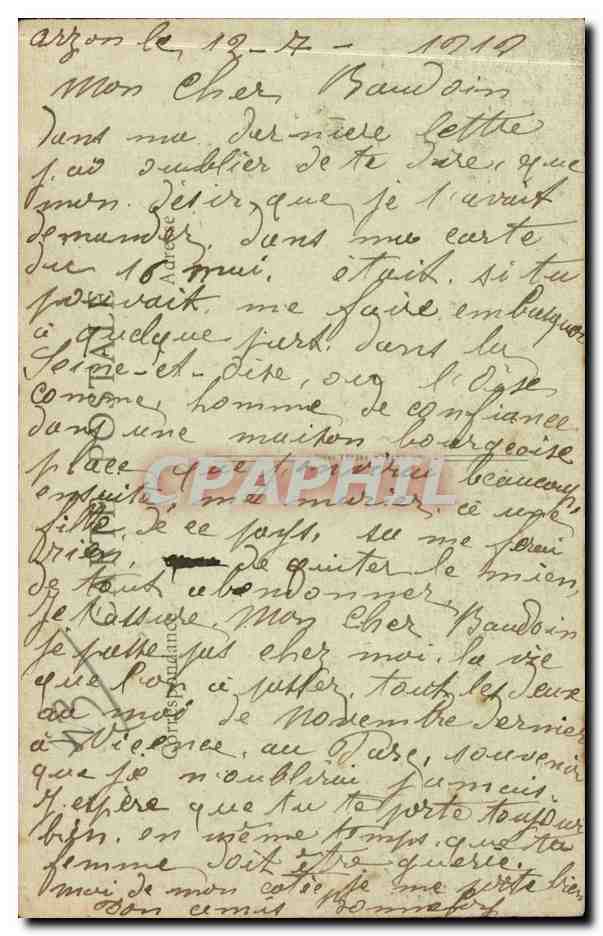 arzon le, 12-7- 1919
Mon Cher, Baudoin
dans ma dernière lettre
j'ai oublier de te dire, que
mon désir, que je t'avait
demander, dans ma carte
du 16 mai, était, si tu
pouvait, me faire embasquer
à quelque part, dans la
Seine-et-Oise, ou l'Oise
comme, homme de confiance
dans une maison bourgeoise
place que beaucoup,
ensuite, me marier, à une
fille, de ce pays, sa me ferai
rien, de quitter le mien,
de tout abandonner,
Je t'assure, Mon Cher Baudoin
je passe pas chez moi, la vie
que l'on a passer, tout les deux
au mois de Novembre dernier
à Vicence, au Parc, souvenir
que je n'oublirai jamais.
J'espère que tu te porte toujour
bien, en même temps, que ta
femme doit être guérie.
moi de mon cotée, je me porte bien
Ton amis Bonnefoy
CARTE POSTALE
Correspondance
Adresse
CPAPHIL